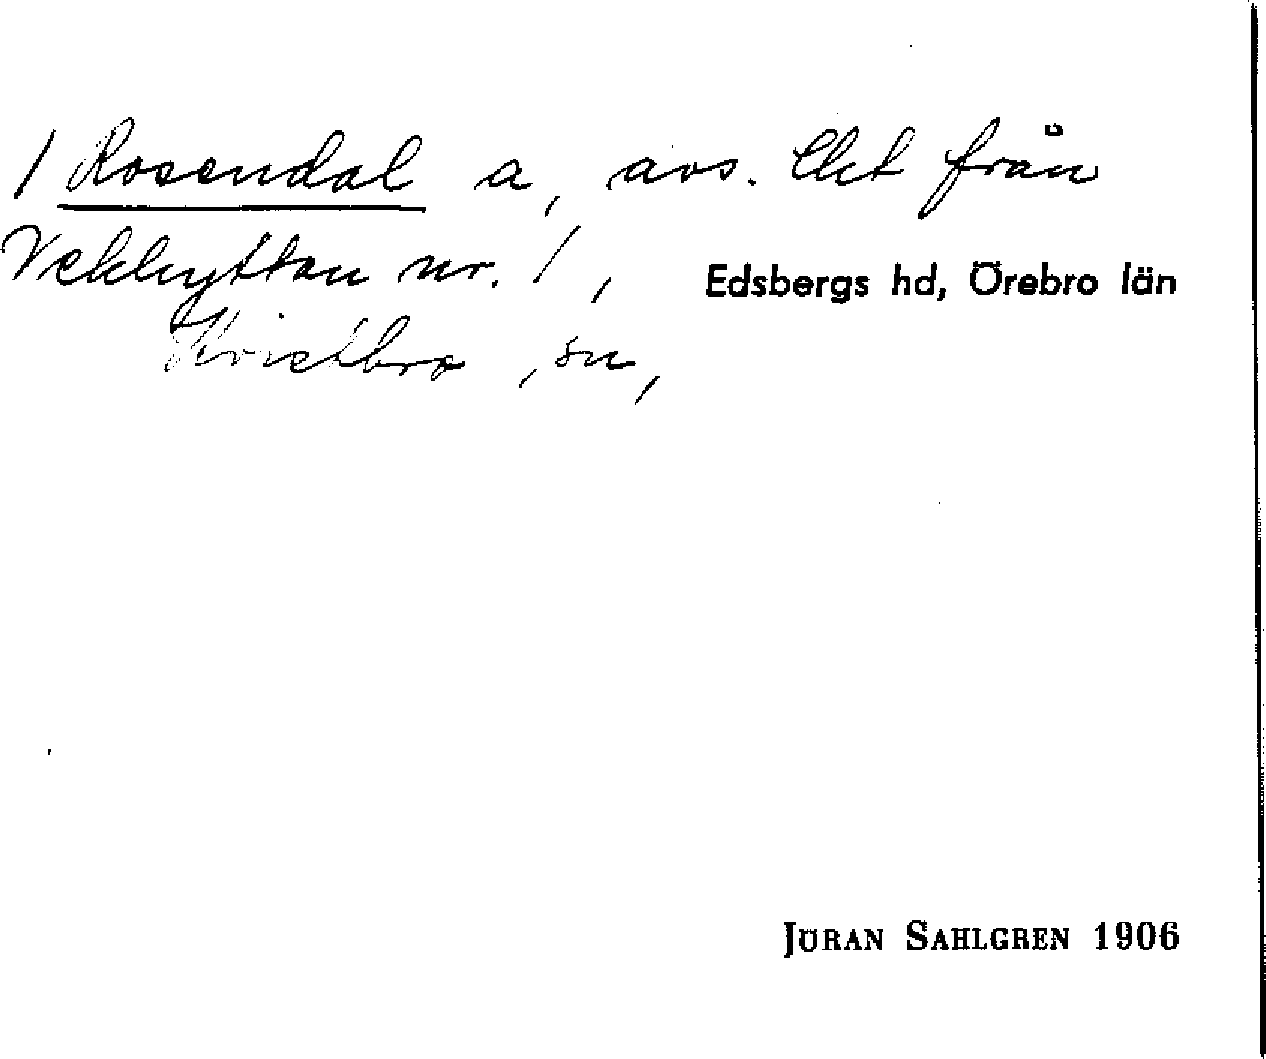 1 Rosendal a, avs. lht från
Vekhyttan nr. 1, Edsbergs hd, Örebro län
Kvistbro, sn,
JÖRAN SAHLGREN 1906